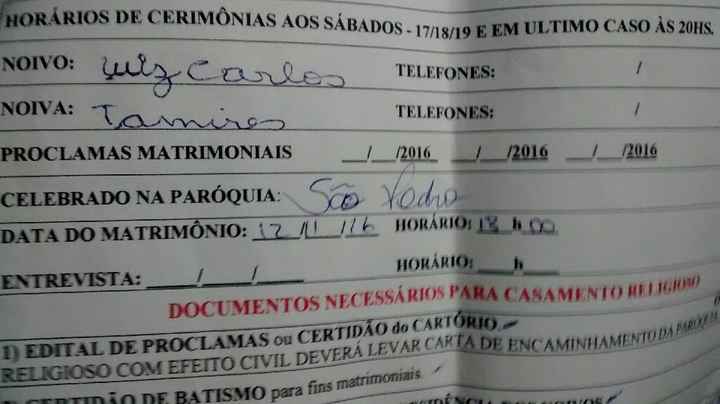 HORÁRIOS DE CERIMÔNIAS AOS SÁBADOS - 17/18/19 E EM ULTIMO CASO ÀS 20HS.
NOIVO: Luiz Carlos TELEFONES: /
NOIVA: Tamires TELEFONES: /
PROCLAMAS MATRIMONIAIS __/__/2016 __/__/2016 __/__/2016
CELEBRADO NA PARÓQUIA: São Pedro
DATA DO MATRIMÔNIO: 12/11/16 HORÁRIO: 18 h 00
ENTREVISTA: ____/____/____ HORÁRIO: ___h___
DOCUMENTOS NECESSÁRIOS PARA CASAMENTO RELIGIOSO
1) EDITAL DE PROCLAMAS ou CERTIDÃO do CARTÓRIO.
RELIGIOSO COM EFEITO CIVIL DEVERÁ LEVAR CARTA DE ENCAMINHAMENTO DA PARÓQUIA
CERTIDÃO DE BATISMO para fins matrimoniais.